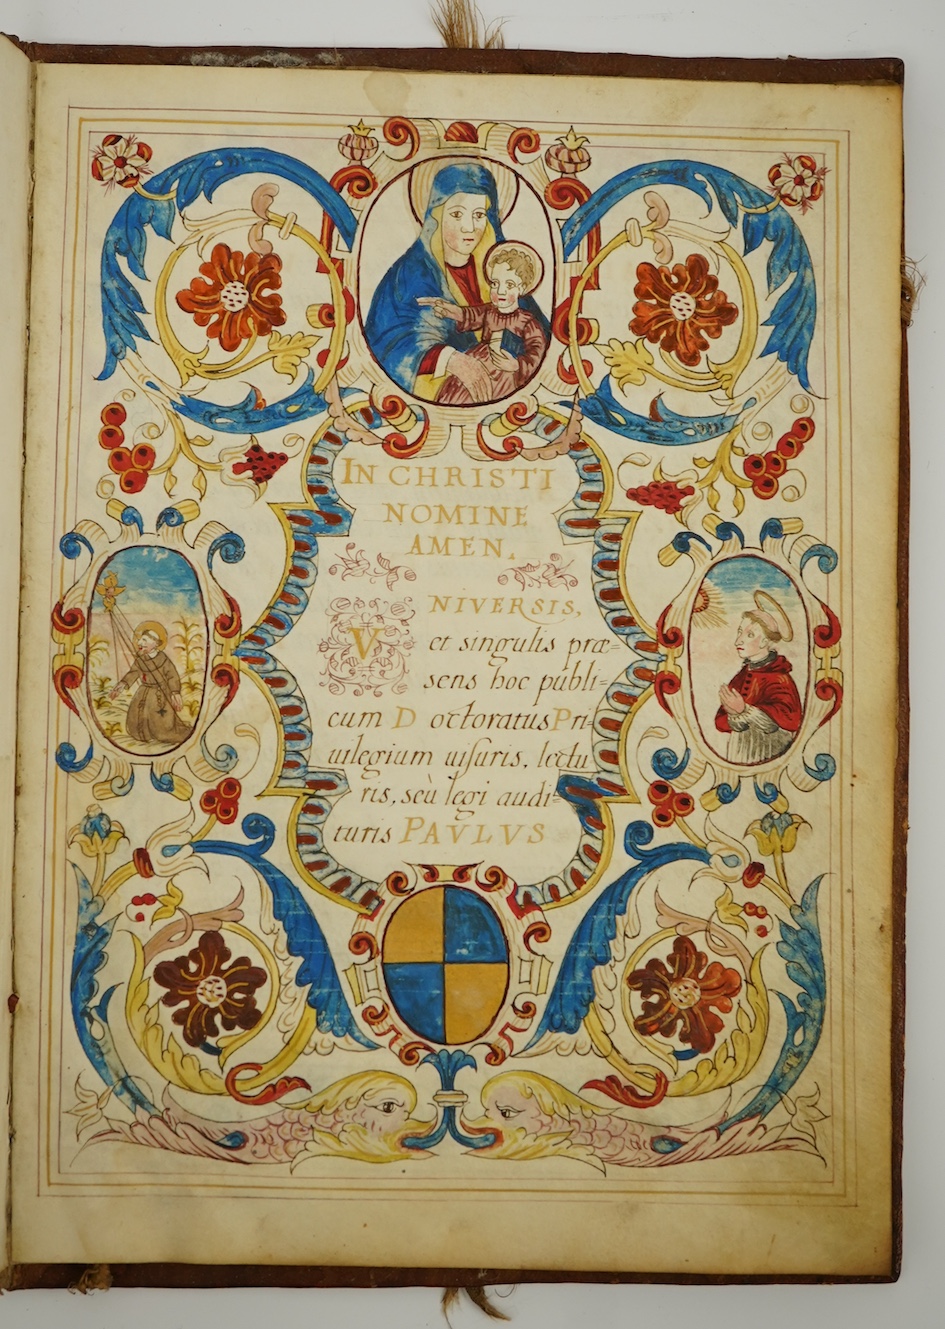 IN CHRISTI
NOMINE
AMEN.
VNIVERSIS,
et singulis præ=
sens hoc publi=
cum Doctoratus Pri=
uilegium uiſuris, lectu
ris, seù legi audi=
turis PAVLVS